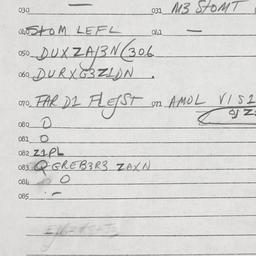 030 — 031 M3 STOMT
040 STOM LEFL 041 —
050 DUXZAJ3N (306
060 DURXG3Z1DN .
070 FAR D1 FLEJST 071 AMOL V1S1
080 O
081 O
082 Z1PL
083 Q GREB3R3 ZAXN
084 O
085 . –